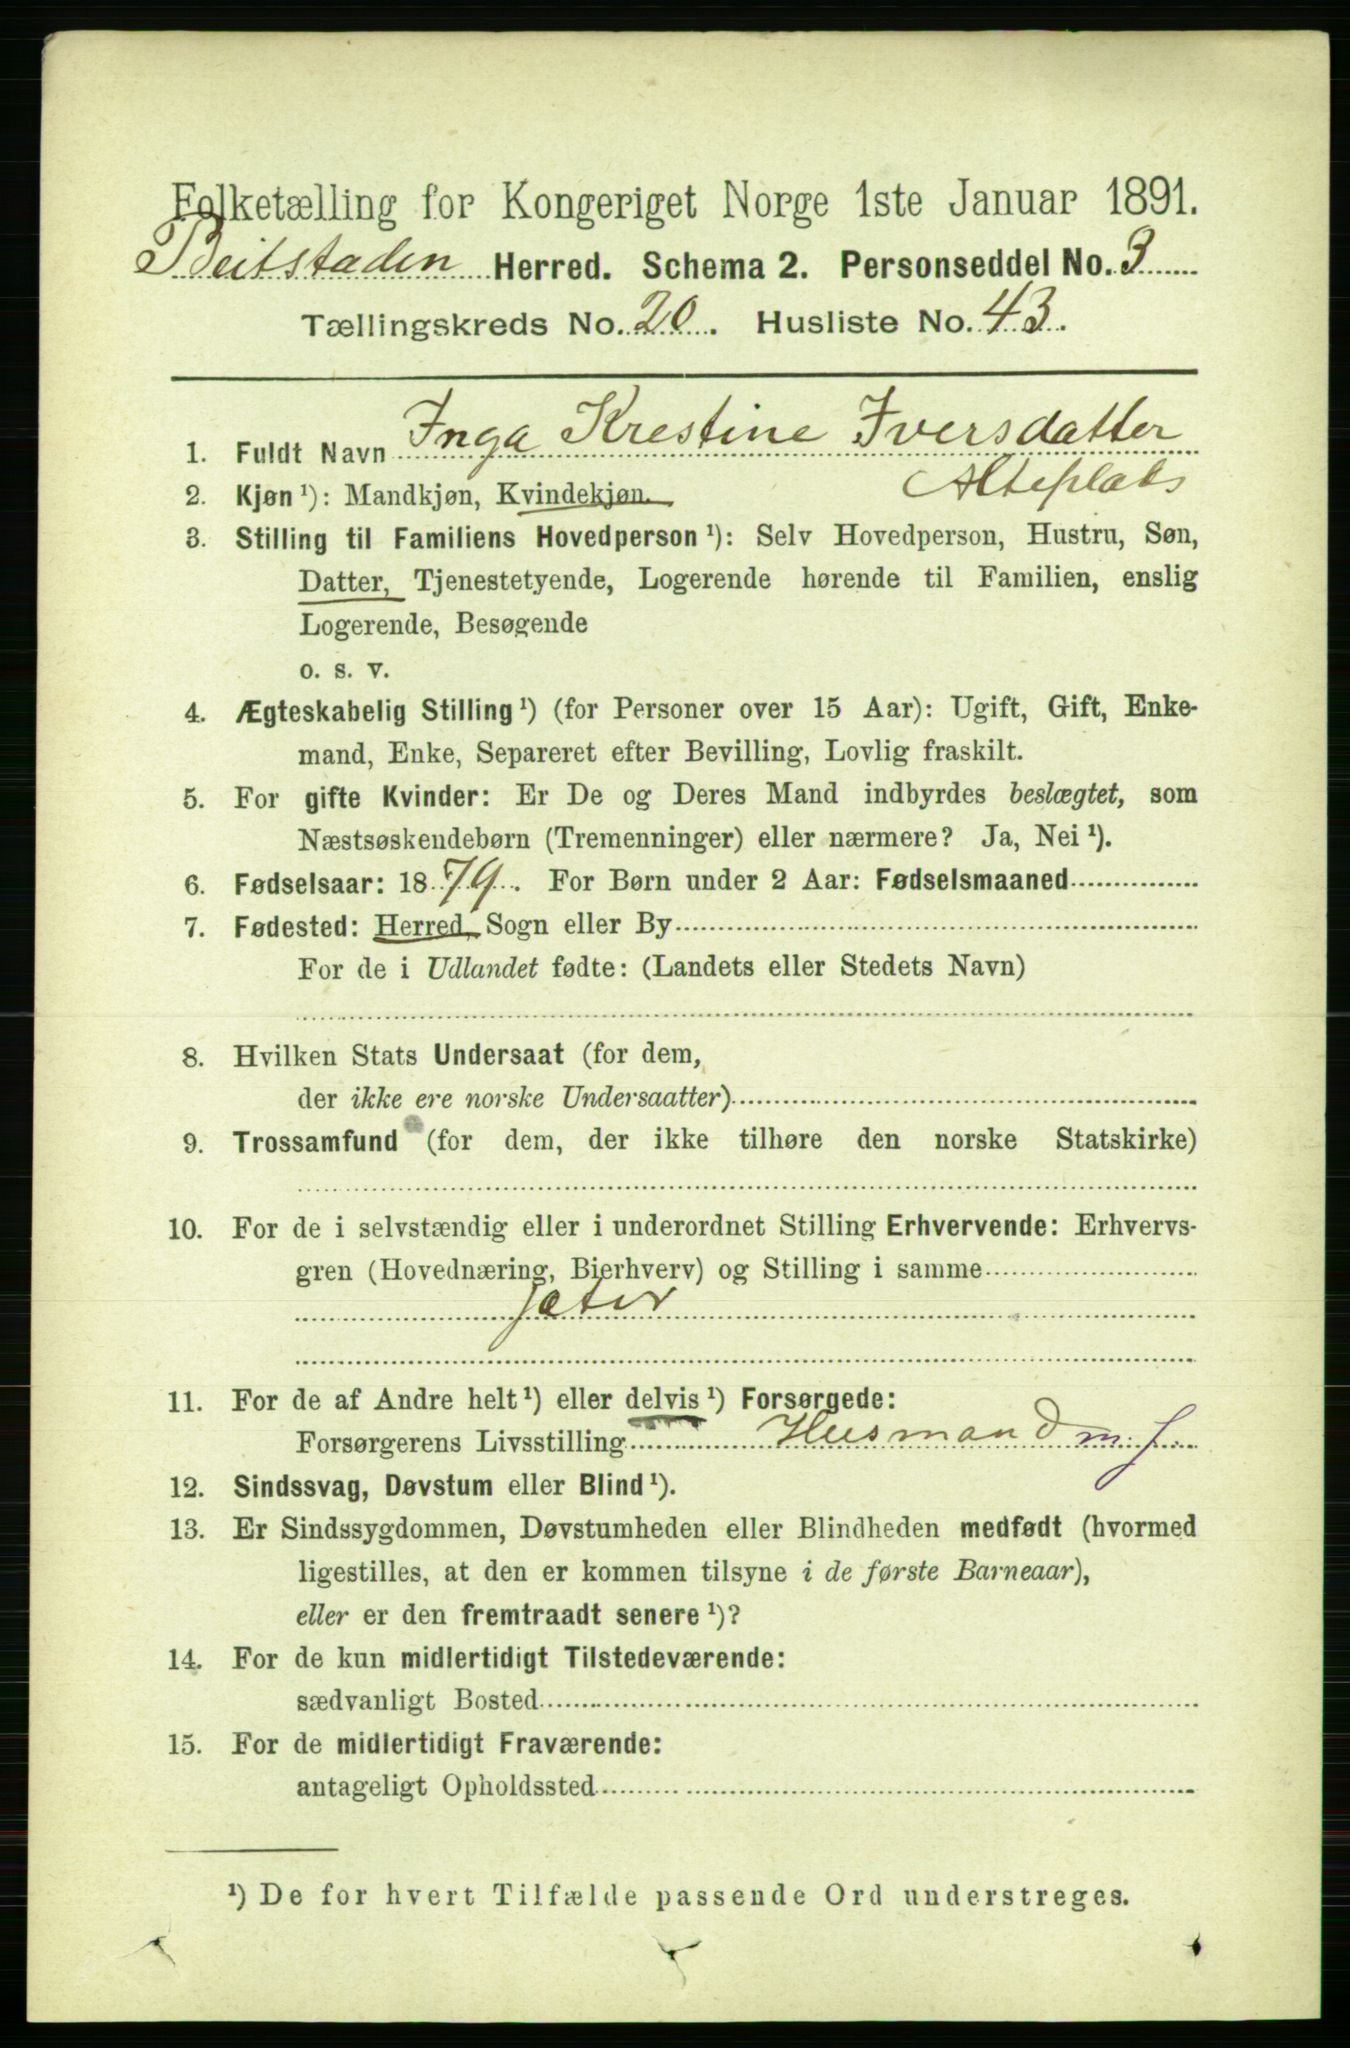 Folketælling for Kongeriget Norge 1ste Januar 1891.
Beitstaden Herred. Schema 2. Personseddel No. 3
Tællingskreds No. 20. Husliste No. 43.
1. Fuldt Navn Inga Krestine Iversdatter
Alteplads
2. Kjøn ¹): Mandkjøn, Kvindekjøn.
3. Stilling til Familiens Hovedperson ¹): Selv Hovedperson, Hustru, Søn,
Datter, Tjenestetyende, Logerende hørende til Familien, enslig
Logerende, Besøgende
o. s. v.
4. Ægteskabelig Stilling ¹) (for Personer over 15 Aar): Ugift, Gift, Enke-
mand, Enke, Separeret efter Bevilling, Lovlig fraskilt.
5. For gifte Kvinder: Er De og Deres Mand indbyrdes beslægtet, som
Næstsøskendebørn (Tremenninger) eller nærmere? Ja, Nei ¹).
6. Fødselsaar: 1879. For Børn under 2 Aar: Fødselsmaaned
7. Fødested: Herred, Sogn eller By
For de i Udlandet fødte: (Landets eller Stedets Navn)
8. Hvilken Stats Undersaat (for dem,
der ikke ere norske Undersaatter)
9. Trossamfund (for dem, der ikke tilhøre den norske Statskirke)
10. For de i selvstændig eller i underordnet Stilling Erhvervende: Erhvervs-
gren (Hovednæring, Bierhverv) og Stilling i samme
jæter
11. For de af Andre helt ¹) eller delvis ¹) Forsørgede:
Forsørgerens Livsstilling Husmand m. j.
12. Sindssvag, Døvstum eller Blind ¹).
13. Er Sindssygdommen, Døvstumheden eller Blindheden medfødt (hvormed
ligestilles, at den er kommen tilsyne i de første Barneaar),
eller er den fremtraadt senere ¹)?
14. For de kun midlertidigt Tilstedeværende:
sædvanligt Bosted
15. For de midlertidigt Fraværende:
antageligt Opholdssted
¹) De for hvert Tilfælde passende Ord understreges.